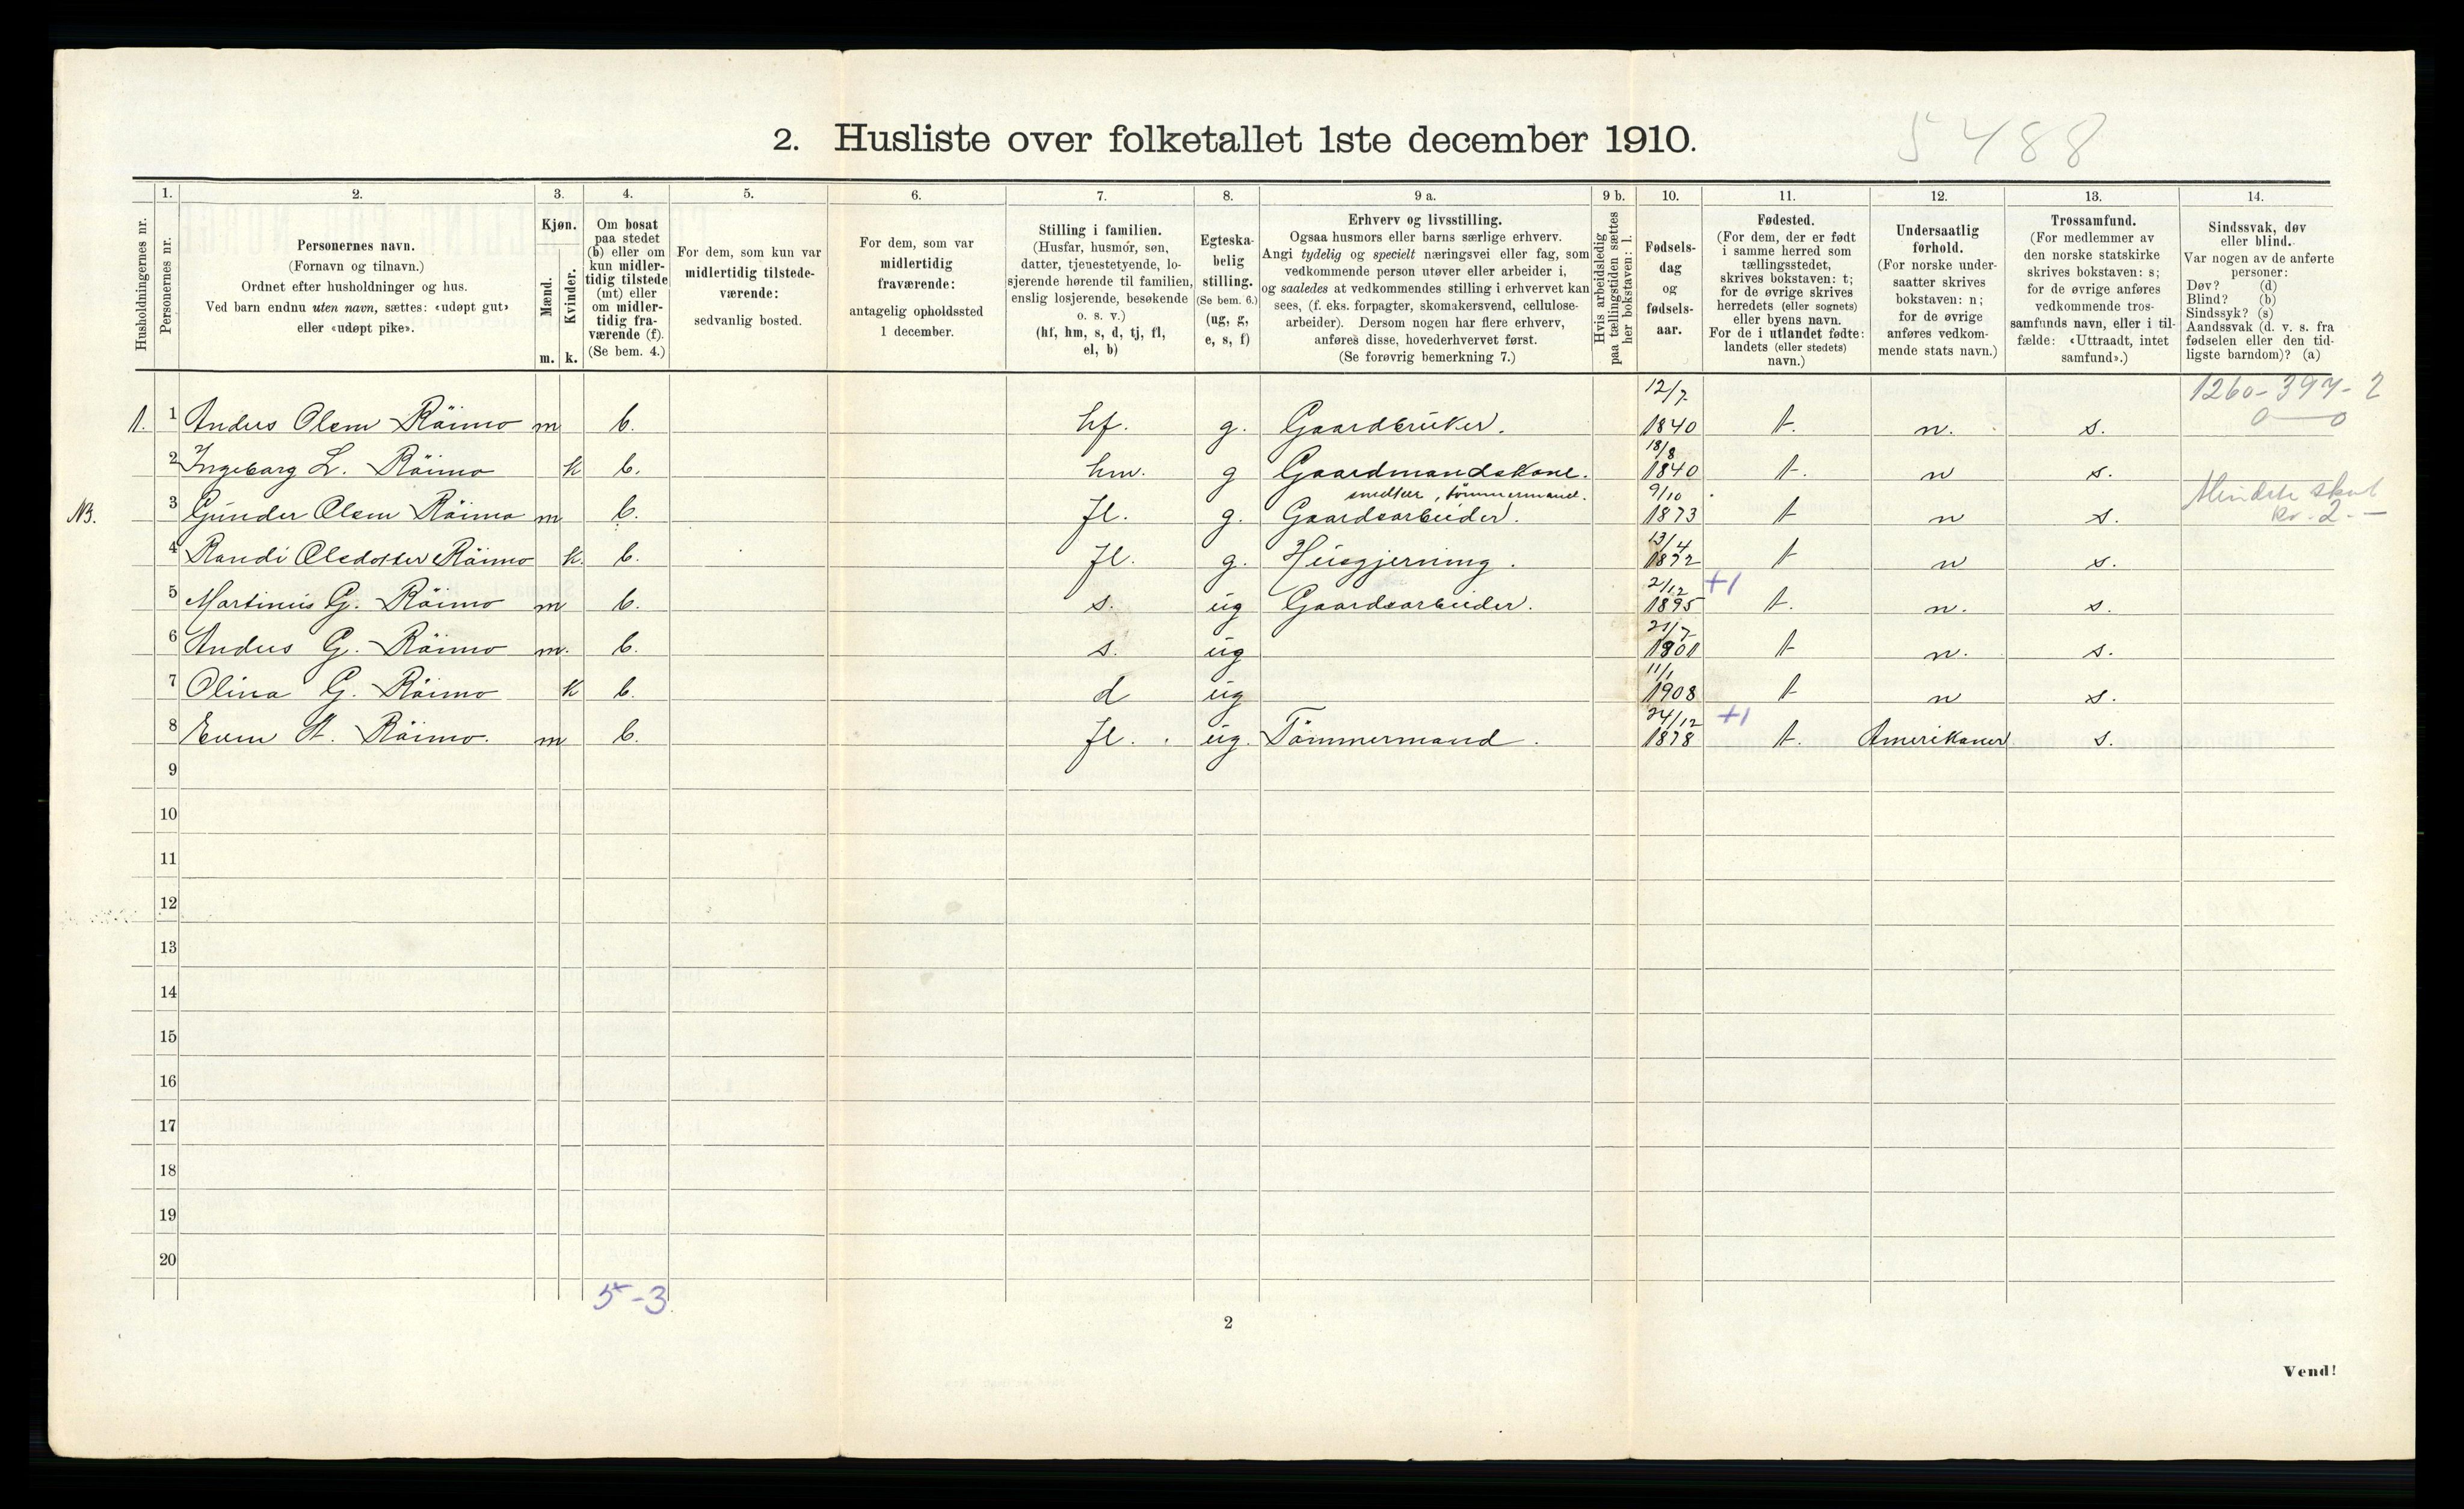 2. Husliste over folketallet 1ste december 1910.
5488
1. 2. 3. 4. 5. 6. 7. 8. 9 a. 9 b. 10. 11. 12. 13. 14.
Husholdningernes nr.
Personernes nr.
Personernes navn.
(Fornavn og tilnavn.)
Ordnet efter husholdninger og hus.
Ved barn endnu uten navn, sættes: «udøpt gut»
eller «udøpt pike».
Kjøn.
Mænd.
Kvinder.
m. k.
Om bosat
paa stedet
(b) eller om
kun midler-
tidig tilstede
(mt) eller
om midler-
tidig fra-
værende (f).
(Se bem. 4.)
For dem, som kun var
midlertidig tilstede-
værende:
sedvanlig bosted.
For dem, som var
midlertidig
fraværende:
antagelig opholdssted
1 december.
Stilling i familien.
(Husfar, husmor, søn,
datter, tjenestetyende, lo-
sjerende hørende til familien,
enslig losjerende, besøkende
o. s. v.)
(hf, hm, s, d, tj, fl,
el, b)
Egteska-
belig
stilling.
(Se bem. 6.)
(ug, g,
e, s, f)
Erhverv og livsstilling.
Ogsaa husmors eller barns særlige erhverv.
Angi tydelig og specielt næringsvei eller fag, som
vedkommende person utøver eller arbeider i,
og saaledes at vedkommendes stilling i erhvervet kan
sees, (f. eks. forpagter, skomakersvend, cellulose-
arbeider). Dersom nogen har flere erhverv,
anføres disse, hovederhvervet først.
(Se forøvrig bemerkning 7.)
Hvis arbeidsledig
paa tællingstiden sættes
her bokstaven: l.
Fødsels-
dag
og
fødsels-
aar.
Fødested.
(For dem, der er født
i samme herred som
tællingsstedet,
skrives bokstaven: t;
for de øvrige skrives
herredets (eller sognets)
eller byens navn.
For de i utlandet fødte:
landets (eller stedets)
navn.)
Undersaatlig
forhold.
(For norske under-
saatter skrives
bokstaven: n;
for de øvrige
anføres vedkom-
mende stats navn.)
Trossamfund.
(For medlemmer av
den norske statskirke
skrives bokstaven: s;
for de øvrige anføres
vedkommende tros-
samfunds navn, eller i til-
fælde: «Uttraadt, intet
samfund».)
Sindssvak, døv
eller blind.
Var nogen av de anførte
personer:
Døv? (d)
Blind? (b)
Sindssyk? (s)
Aandssvak (d. v. s. fra
fødselen eller den tid-
ligste barndom)? (a)
12/7 1260-397-2
1. 1 Anders Olsen Röimo m b. hf. g. Gaardbruker. 1840 t. n. s. 0 — 0
18/8
2 Ingebarg L. Röimo k b. hm. g Gaardmandskone. 1840 t. n s.
9/10
NB. 3 Gunder Olsen Röimo m b. fl. g. Gaardsarbeider. 1873 t n s. kr. 2.-
13/4
4 Randi Olsdotter Röimo k. b. fl. g. Husgjerning. 1872 t n s.
2/12 +1
5 Martinius G. Röimo m b. s. ug Gaardsarbeider. 1895 t. n. s.
21/7
6 Anders G. Röimo m. b. s. ug 1901 t n. s.
11/1
7 Olina G. Röimo k b. d ug 1908 t n s.
24/12 +1
8 Even A. Röimo. m b. fl. ug. Tömmermand. 1878 t. Amerikaner s.
9
10
11
12
13
14
15
16
17
18
19
20
5-3
2
Vend!